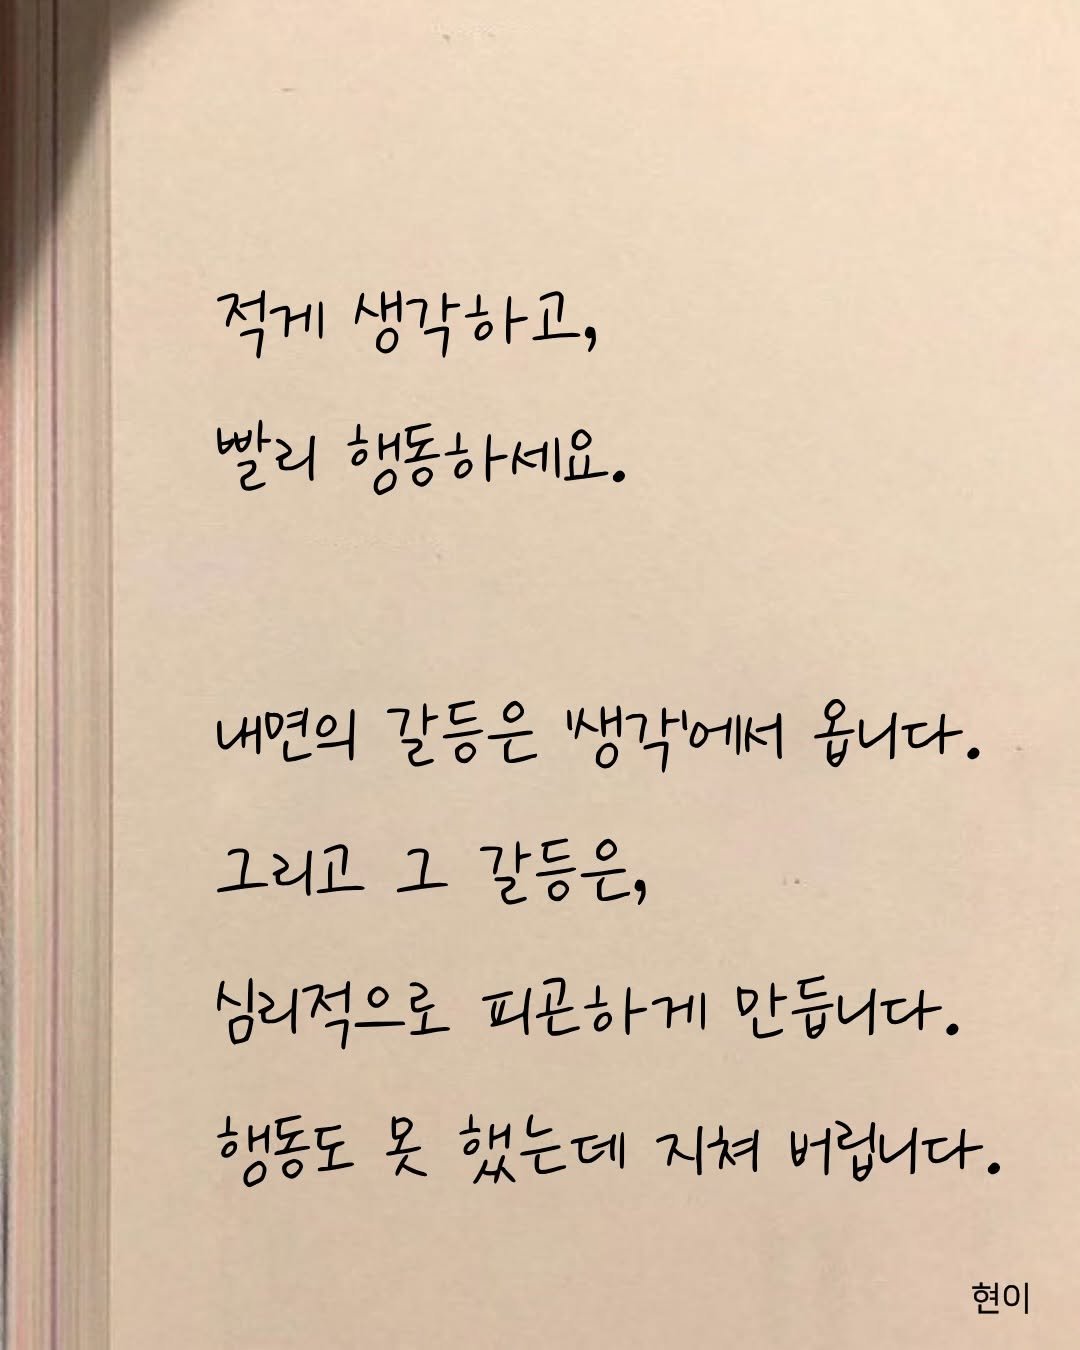 적게 생각하고,
빨리 행동하세요.
내면의 갈등은 '생각'에서 옵니다.
그리고 그 갈등은,
심리적으로 피곤하게 만듭니다.
행동도 못 했는데 지쳐 버립니다.
현이